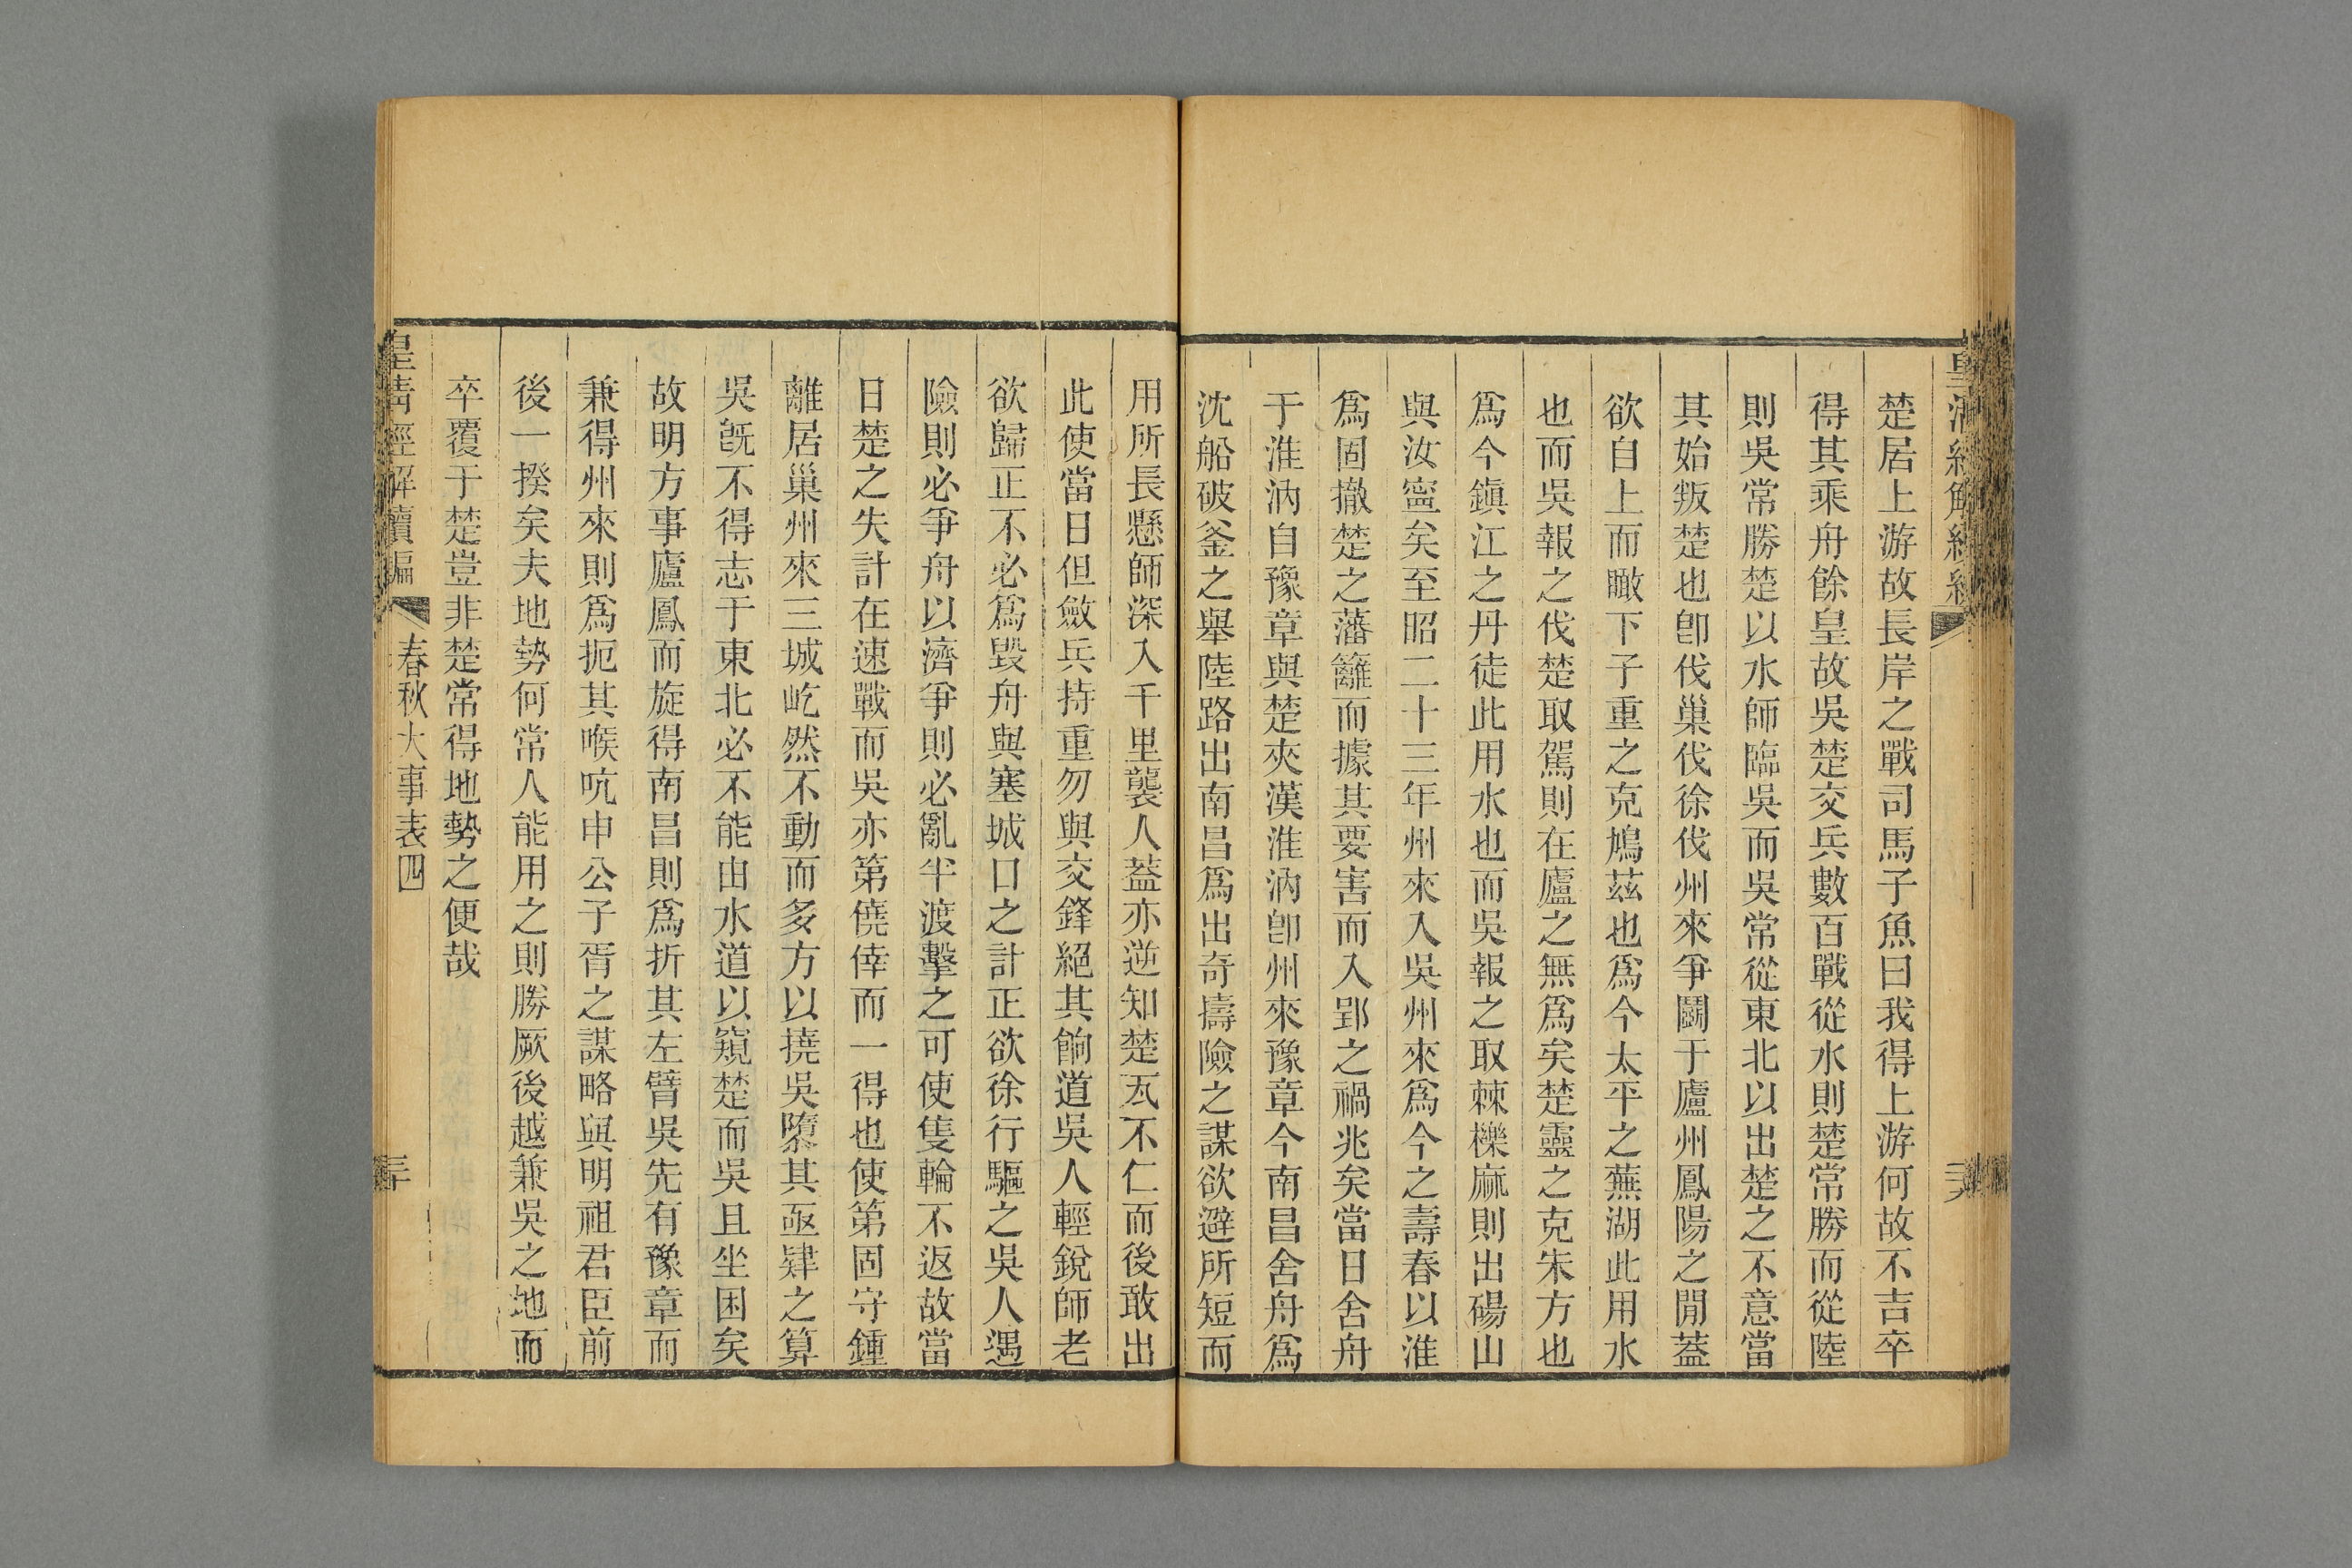 楚居上游故長岸之戰司馬子魚曰我得上游何故不吉卒
得其乘舟餘皇故吳楚交兵數百戰從水則楚常勝而從陸
則吳常勝楚以水師臨吳而吳常從東北以出楚之不意當
其始叛楚也卽伐巢伐徐伐州來爭鬭于廬州鳳陽之閒蓋
欲自上而瞰下子重之克鳩茲也爲今太平之蕪湖此用水
也而吳報之伐楚取駕則在廬之無爲矣楚靈之克朱方也
爲今鎭江之丹徒此用水也而吳報之取棘櫟麻則出碭山
與汝寧矣至昭二十三年州來入吳州來爲今之壽春以淮
爲固撤楚之藩籬而據其要害而入郢之禍兆矣當日舍舟
于淮汭自豫章與楚夾漢淮汭卽州來豫章今南昌舍舟爲
沈船破釜之舉陸路出南昌爲出奇擣險之謀欲避所短而
用所長懸師深入千里襲人蓋亦逆知楚瓦不仁而後敢出
此使當日但斂兵持重勿與交鋒絕其餉道吳人輕銳師老
欲歸正不必爲毀舟與塞城口之計正欲徐行驅之吳人遇
險則必爭舟以濟爭則必亂半渡擊之可使隻輪不返故當
日楚之失計在速戰而吳亦第僥倖而一得也使第固守鍾
離居巢州來三城屹然不動而多方以撓吳隳其亟肄之算
吳旣不得志于東北必不能由水道以窺楚而吳且坐困矣
故明方事廬鳳而旋得南昌則爲折其左臂吳先有豫章而
兼得州來則爲扼其喉吭申公子胥之謀略與明祖君臣前
後一揆矣夫地勢何常人能用之則勝厥後越兼吳之地而
卒覆于楚豈非楚常得地勢之便哉
皇清經解續編 春秋大事表四 三十